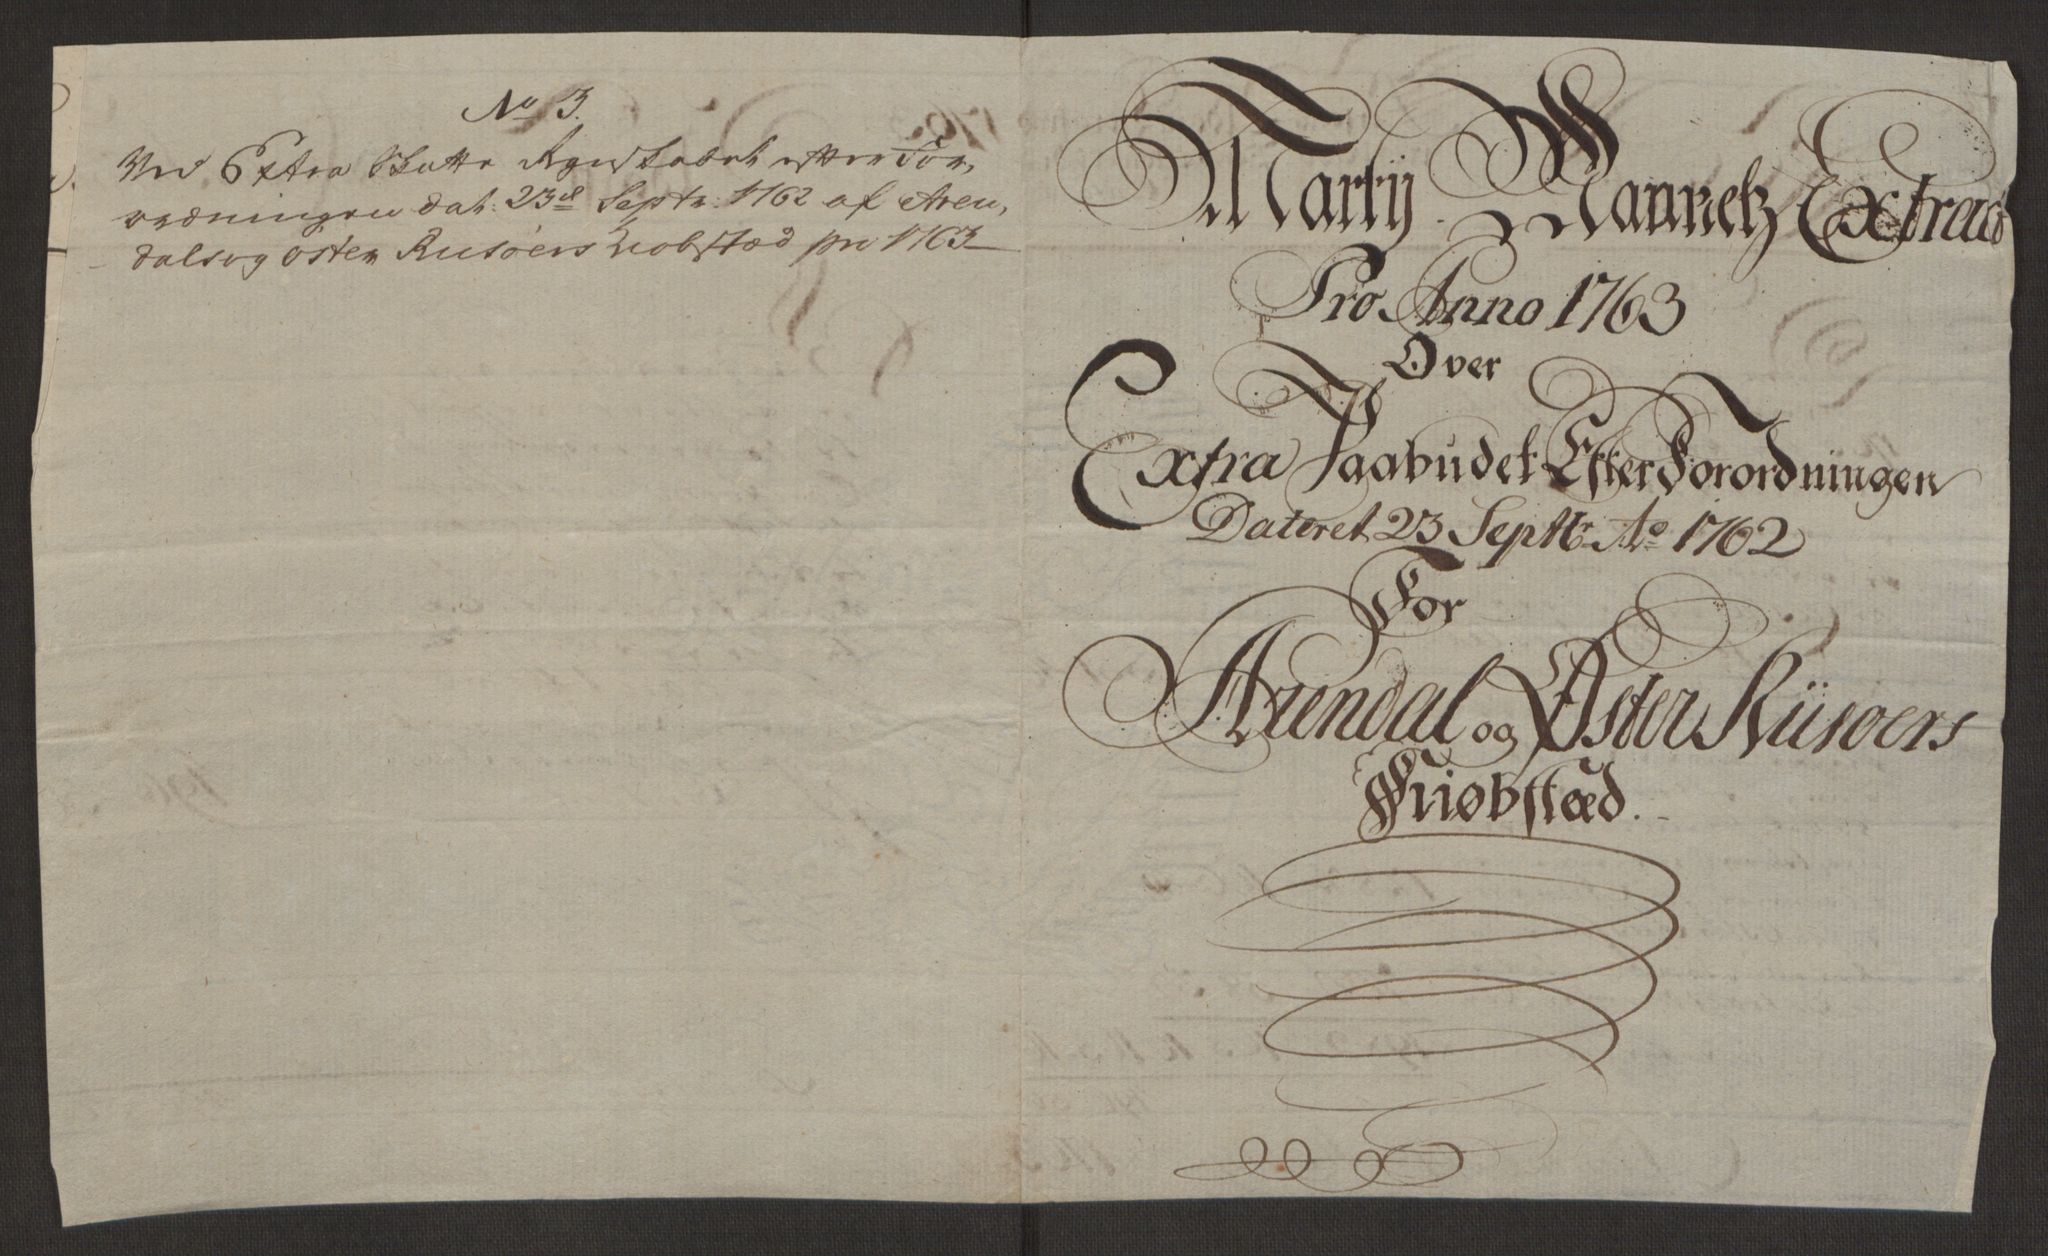 No 3.
Ved Extra Skatte Regnskabet efter For,
ordningen dat: 23d Septr: 1762 af Aren,
dals og Øster Riisøers Kiøbstæd pro 1763
Martij Maanetz Extract
Pro Anno 1763
Over
Extra Paabudet Efter Forordningen
Dateret 23 Septbr Ao 1762
For
Arendal og Øster Riisøers
Kiøbstæd.